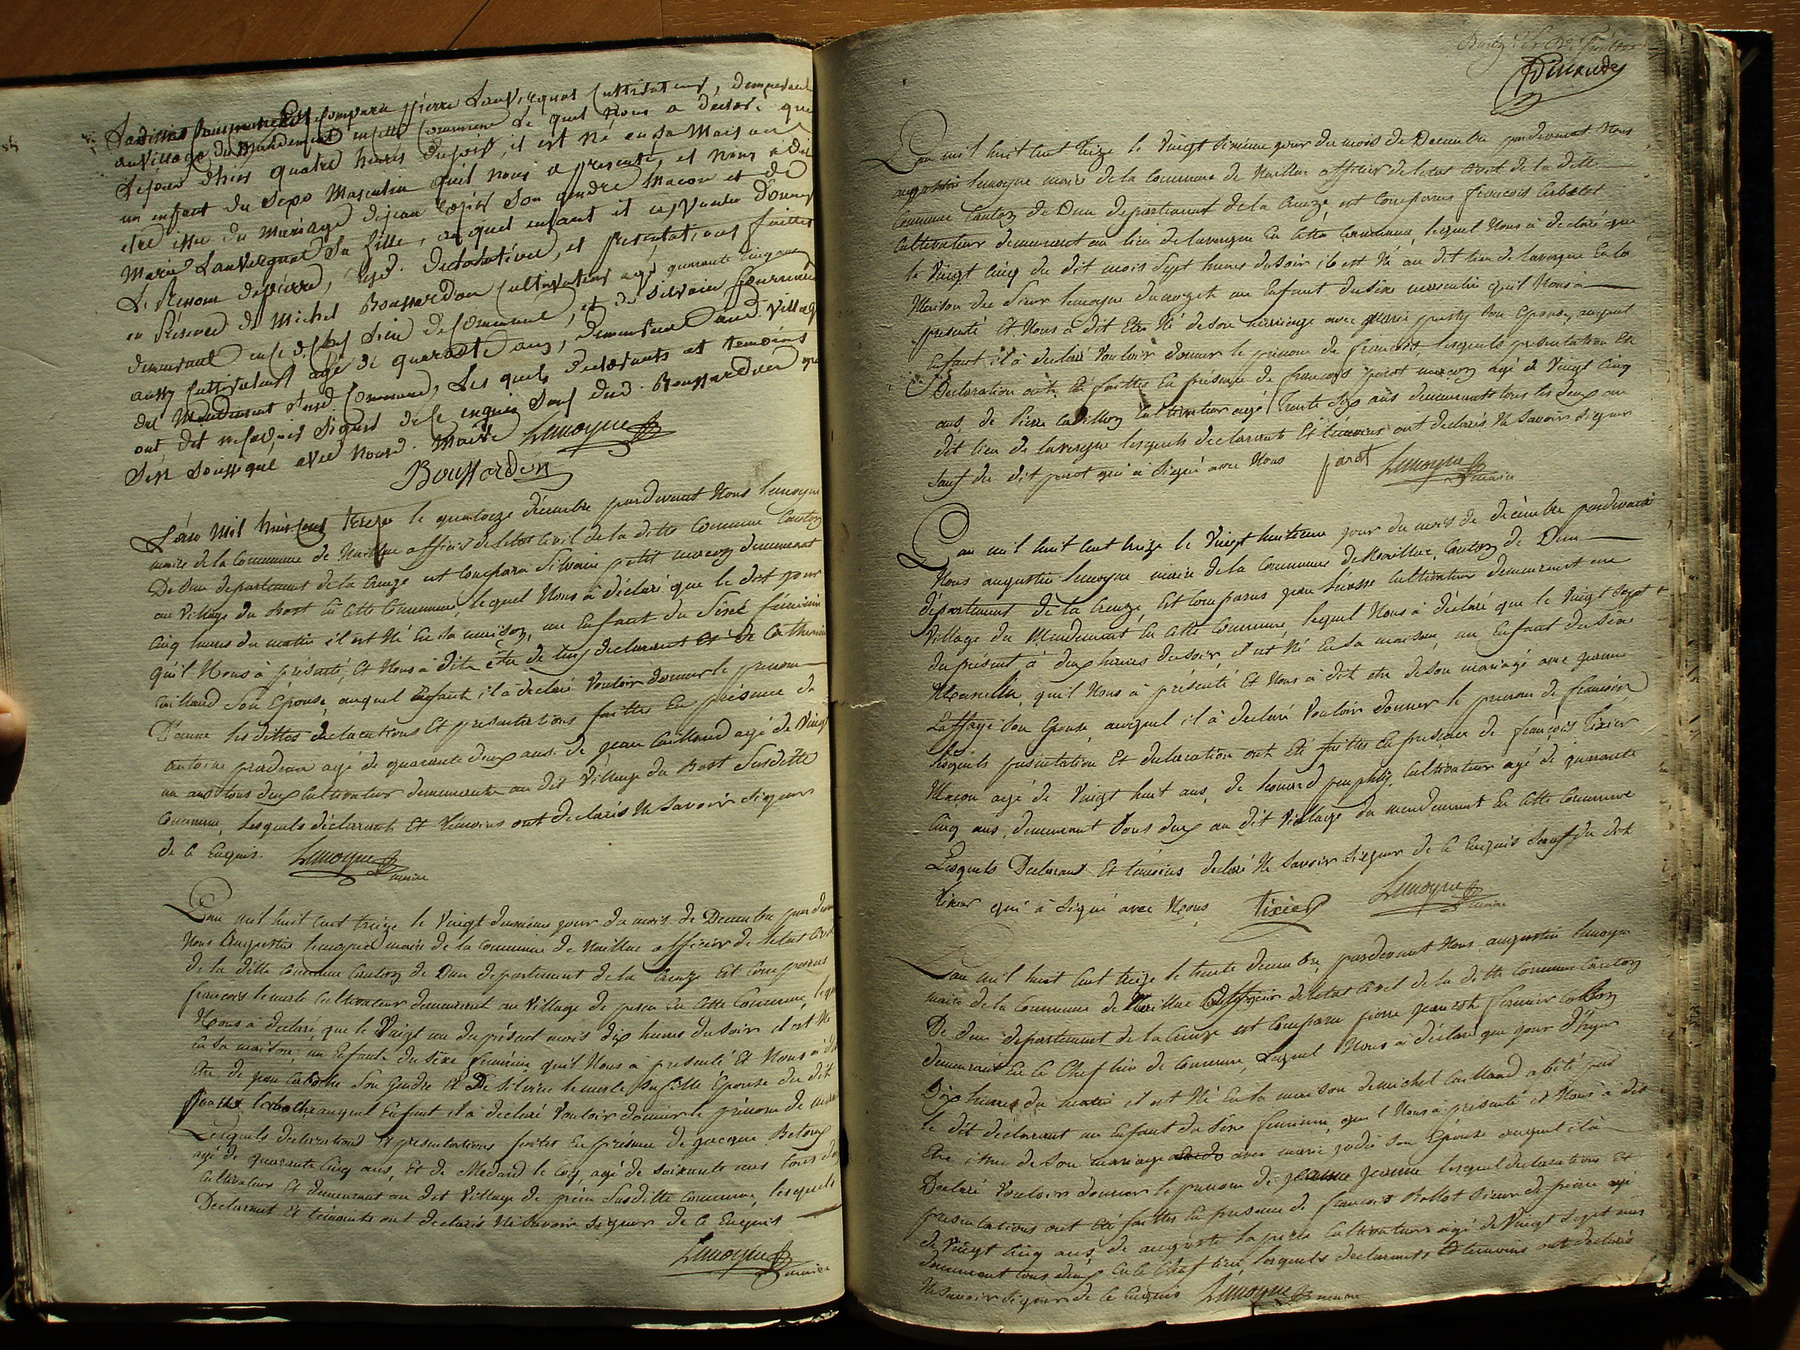 est comparu pierre Lauvergnat Cultivateur, demeurant
au village du Mandement en cette Commune Le quel nous a declaré que
Lejour d'hier quatre heures Dusoir, il est né en sa Maison
un enfant du Sexe Masculin qu'il nous a presenté, et nous a dit
etre issu du Mariage dejean son gendre Macon et de
Marie Lauvergnat Sa fille, auquel enfant il a voulu Donner
Le Prenom depierre, Declaration, et presentations faittes
en Présence de Michel Boussardon Cultivateur agé quarante cinq ans
demeurant en ce dit chef Lieu de Commune, et de Silvain fourneau
aussy Cultivateur agé de quarante ans, demeurant aud. Village
du Mandement susd. Commune, Les quels declarants et temoins
ont dit ne savoir Signer de Ce enquis Sauf dud. Boussardon qui
S'est Soussigné avec nous d. Maire Lemoyne
Boussardon
L'an Mil huit Cent treize le quatorze décembre pardevant Nous Lemoyne
maire de la Commune de Naillac officier de letat Civil de la ditte Commune Canton
De Dun departement de la Creuze est Comparu Silvain petit macon demeurant
au Village du Bost En Cette Commune lequel Nous à déclaré que le dit jour
Cinq heures du matin il est Né En Sa maison, un Enfant du Sexe féminin
qu'il Nous à présenté, Et Nous à dit être de luy declarant Et de Catherine
Caillaud Son Epouse, auquel Enfant il à déclaré Vouloir donner le prenom
D'anne les dittes déclarations Et présentations faittes En présence de
antoine pradeau agé de quarante deux ans. de jean Caillaud agé de Vingt
un ans tous deux Cultivateur demeurants au dit Village du Bost Susditte
Commune, lesquels déclarants Et Témoins ont declarés Ne Savoir Signer
de Ce Enquis. Lemoyne
maire
L'an mil huit Cent treize le Vingt deuxième jour du mois de Decembre pardevant
Nous Augustin lemoyne maire de la Commune de Naillac officier de letat Civil
de la ditte Commune Canton de Dun departement de la Creuze Est Comparus
francois lemerle Cultivateur demeurant au Village de En Cette Commune, lequel
Nous à declaré, que le Vingt un du présent mois dix heures du Soir il est Né
En Sa maison, un Enfant du Sexe féminin qu'il Nous à presenté Et Nous à dit
être de jean Son Gendre Et De Silvine lemerle Sa fille Epouse du dit
auquel Enfant il à déclaré Vouloir donner le prénom de
Lesquels declarations Et présentations faites En présence de jacques
agé de quarante Cinq ans, Et de Medard le Coq, agé de Soixante ans tous deux
Cultivateur Et demeurant au dit Village de Susditte Commune, lesquels
Declarant Et témoints ont declarés Ne Savoir Signer de Ce Enquis
Lemoyne
maire
L'an mil huit Cent treize le Vingt Sixieme jour du mois de Decembre pardevant Nous
augustin lemoyne maire de la Commune de Naillac officier de letat Civil de la ditte
Commune Canton de Dun departement de la Creuze, est Comparus francois
Cultivateur demeurant au lieu de lavergne En Cette Commune, lequel Nous à declaré que
le Vingt Cinq du dit mois Sept heures du Soir il est Né au dit lieu de lavergne En la
Maison du Sieur lemoyne un Enfant du Sexe masculin qu'il Nous à
présenté Et Nous à dit Etre Né de Son mariage avec Marie Son Epouse, auquel
Enfant il à déclaré Vouloir donner le prenom de francois lesquels présentation Et
Declaration ont été faittes En présence de francois parot macon agé de Vingt Cinq
ans, de pierre Cultivateur agé Trente Six ans demeurants tous les deux au
dit lieu de lavergne lesquels declarants Et temoins ont declarés Ne Savoir Signer
Sauf du dit parot qui à Signé avec Nous parot Lemoyne
maire
L'an mil huit Cent treize le Vingt huitieme jour du mois de decembre pardevant
Nous augustin lemoyne maire de la Commune de Naillac, Canton de Dun
département de la Creuze, Est Comparus jean Cultivateur demeurant au
Village du Mandement En Cette Commune, lequel Nous à déclaré que le Vingt Sept
du présent à deux heures du Soir, il est Né En Sa maison, un Enfant du Sexe
Masculin, qu'il Nous à présenté Et Nous à dit etre de Son mariage avec jeanne
Son Epouse, auquel il à declaré Vouloir donner le prenom de francois
lesquels présentation Et declaration ont Eté faittes En présence de françois Tixier
Macon agé de Vingt huit ans, de leonard Cultivateur agé de quarante
Cinq ans, demeurant tous deux au dit Village du mandement En Cette Commune
Lesquels Declarant Et témoins declaré Ne Savoir Signer de Ce Enquis Sauf du dit
Tixier qui à Signé avec Nous tixier Lemoyne
maire
L'an mil huit Cent treize le trente decembre pardevant Nous augustin lemoyne
maire de la Commune de Naillac officier de letat Civil de la ditte Commune Canton
De Dun departement de la Creuze est Comparu pierre fermier Colon
demeurant En le Chef lieu de Commune, Lequel Nous à déclaré que jour d'hyer
Dix heures du matin il est Né En la maison de michel Caillaud abité par
le dit déclarant un Enfant du Sexe feminin, que l Nous à presenté et Nous à dit
Etre issue de Son mariage avec marie Son Epouse auquel il à
Declaré Vouloir donner le prenom de jeanne lesquel declarations Et
presentations ont été faittes En presence de francois
de Vingt Cinq ans, de auguste Cultivateurs agé de Vingt Sept ans
demeurant tous deux En le Chef lieu, lesquels declarants Et temoins ont declarés
Ne Savoir Signer de Ce Enquis Lemoyne maire